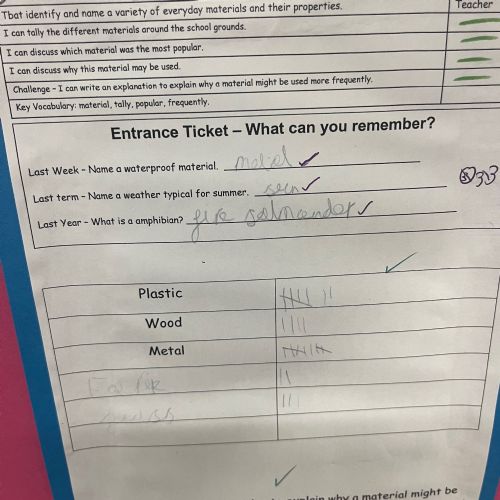 Tbat identify and name a variety of everyday materials and their properties.
Teacher
I can tally the different materials around the school grounds.
I can discuss which material was the most popular.
I can discuss why this material may be used.
Challenge – I can write an explanation to explain why a material might be used more frequently.
Key Vocabulary: material, tally, popular, frequently.
Entrance Ticket – What can you remember?
Last Week – Name a waterproof material.
Last term – Name a weather typical for summer. sun
Last Year – What is a amphibian? fire salmander
Plastic
Wood
Metal
why a material might be